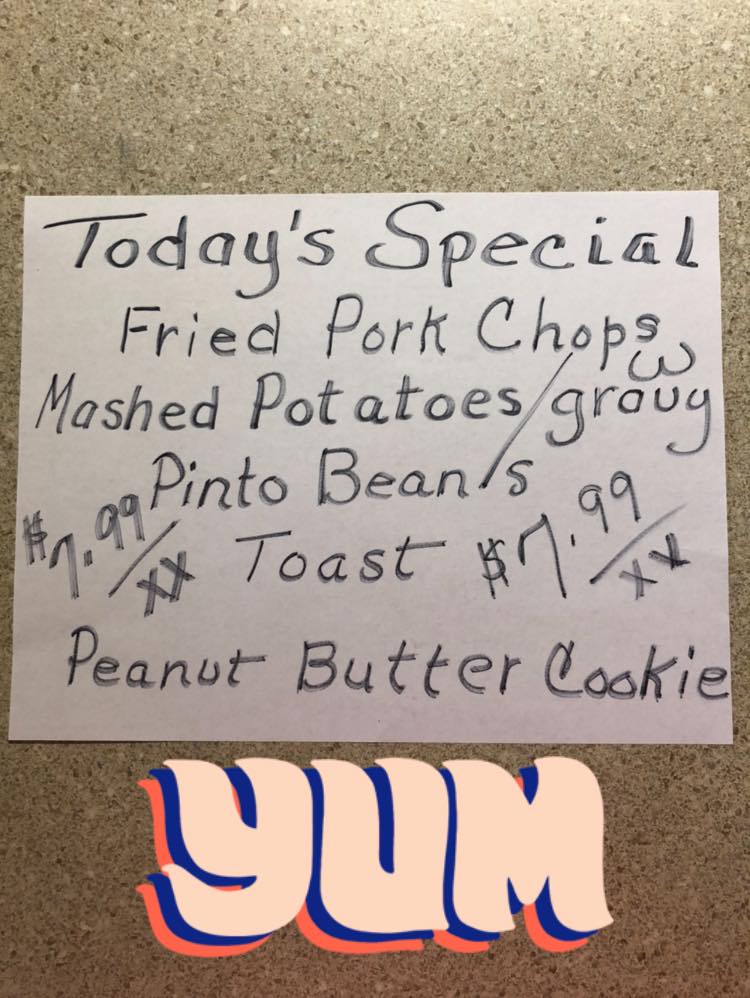 Today's Special
Fried Pork Chops
Mashed Potatoes w/gravy
Pinto Beans
$7.99/xx Toast $7.99/xx
Peanut Butter Cookie
YUM